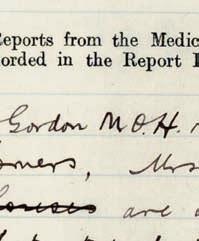 Reports from the Medic
orded in the Report
Gordon M.O.H.
omers, Mrs
houses are